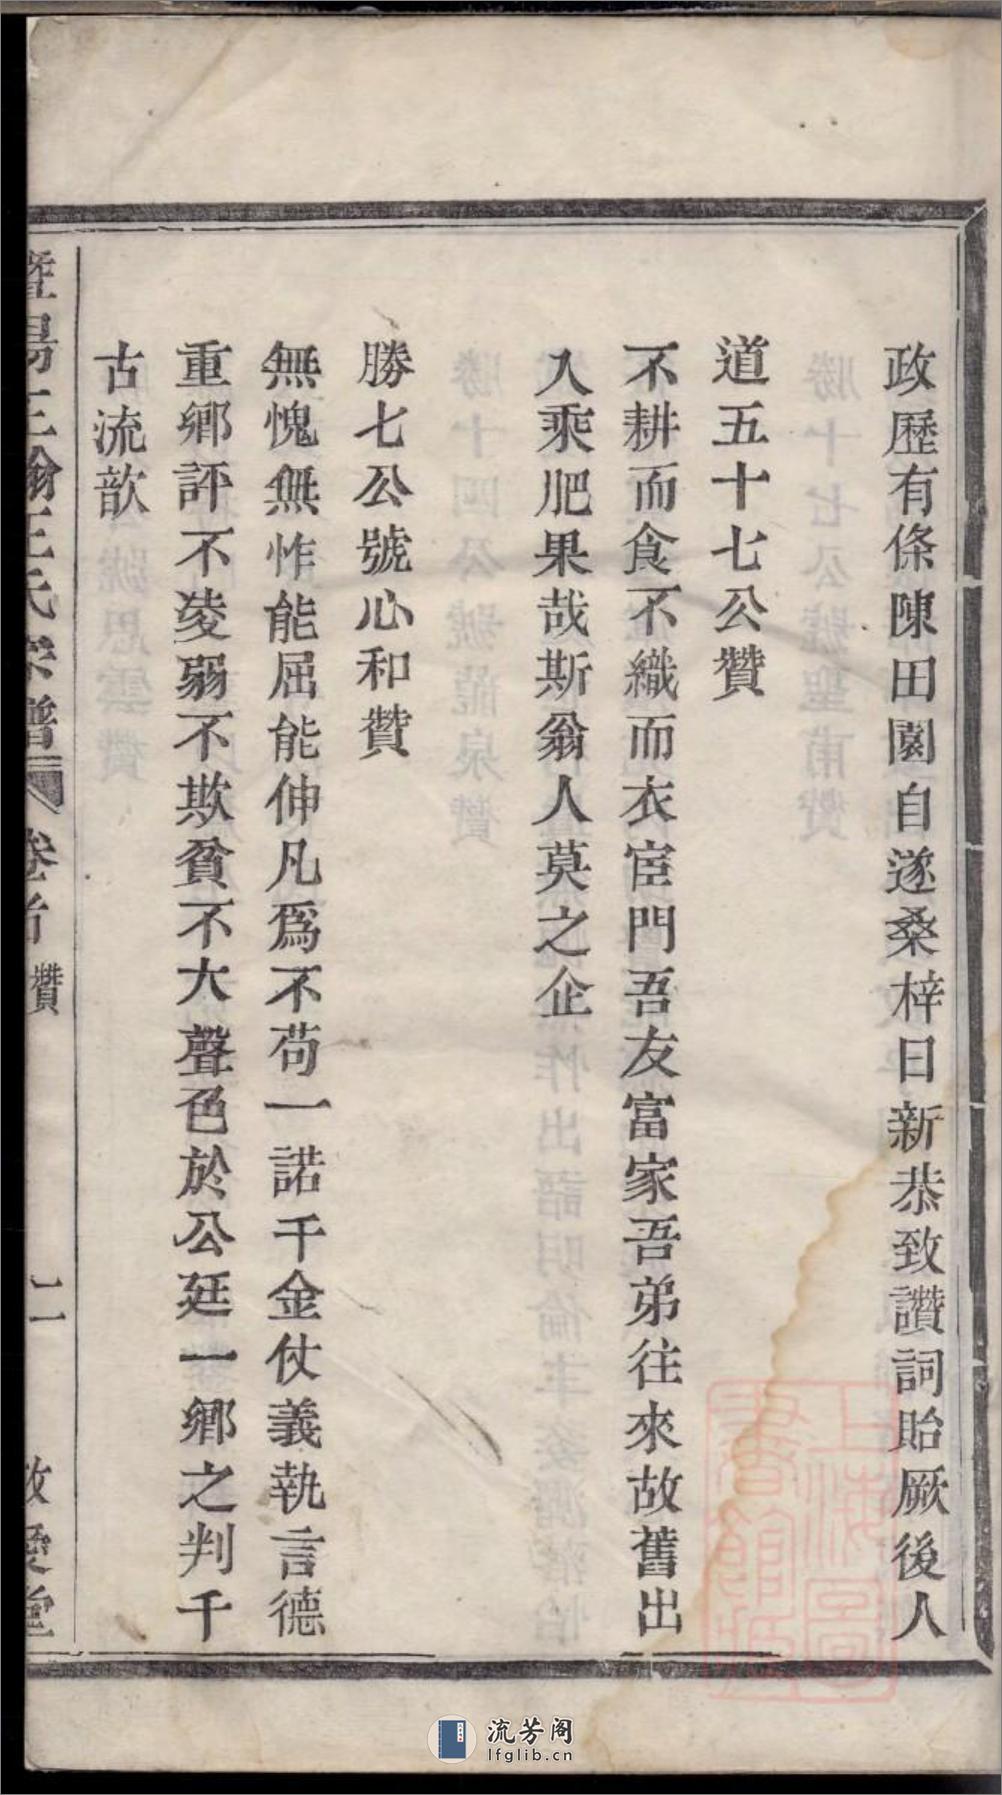 政歷有條陳田園自遂桑梓日新恭致讚詞貽厥後人
道五十七公贊
不耕而食不織而衣宦門吾友富家吾弟往來故舊出
入乘肥果哉斯翁人莫之企
勝七公號心和贊
無愧無怍能屈能伸凡爲不苟一諾千金仗義執言德
重鄉評不凌弱不欺貧不大聲色於公廷一鄉之判千
古流歆
暨陽王翰王氏宗譜 卷首 贊 二 敬愛堂
上海圖書館藏
流芳阁
lfglib.cn